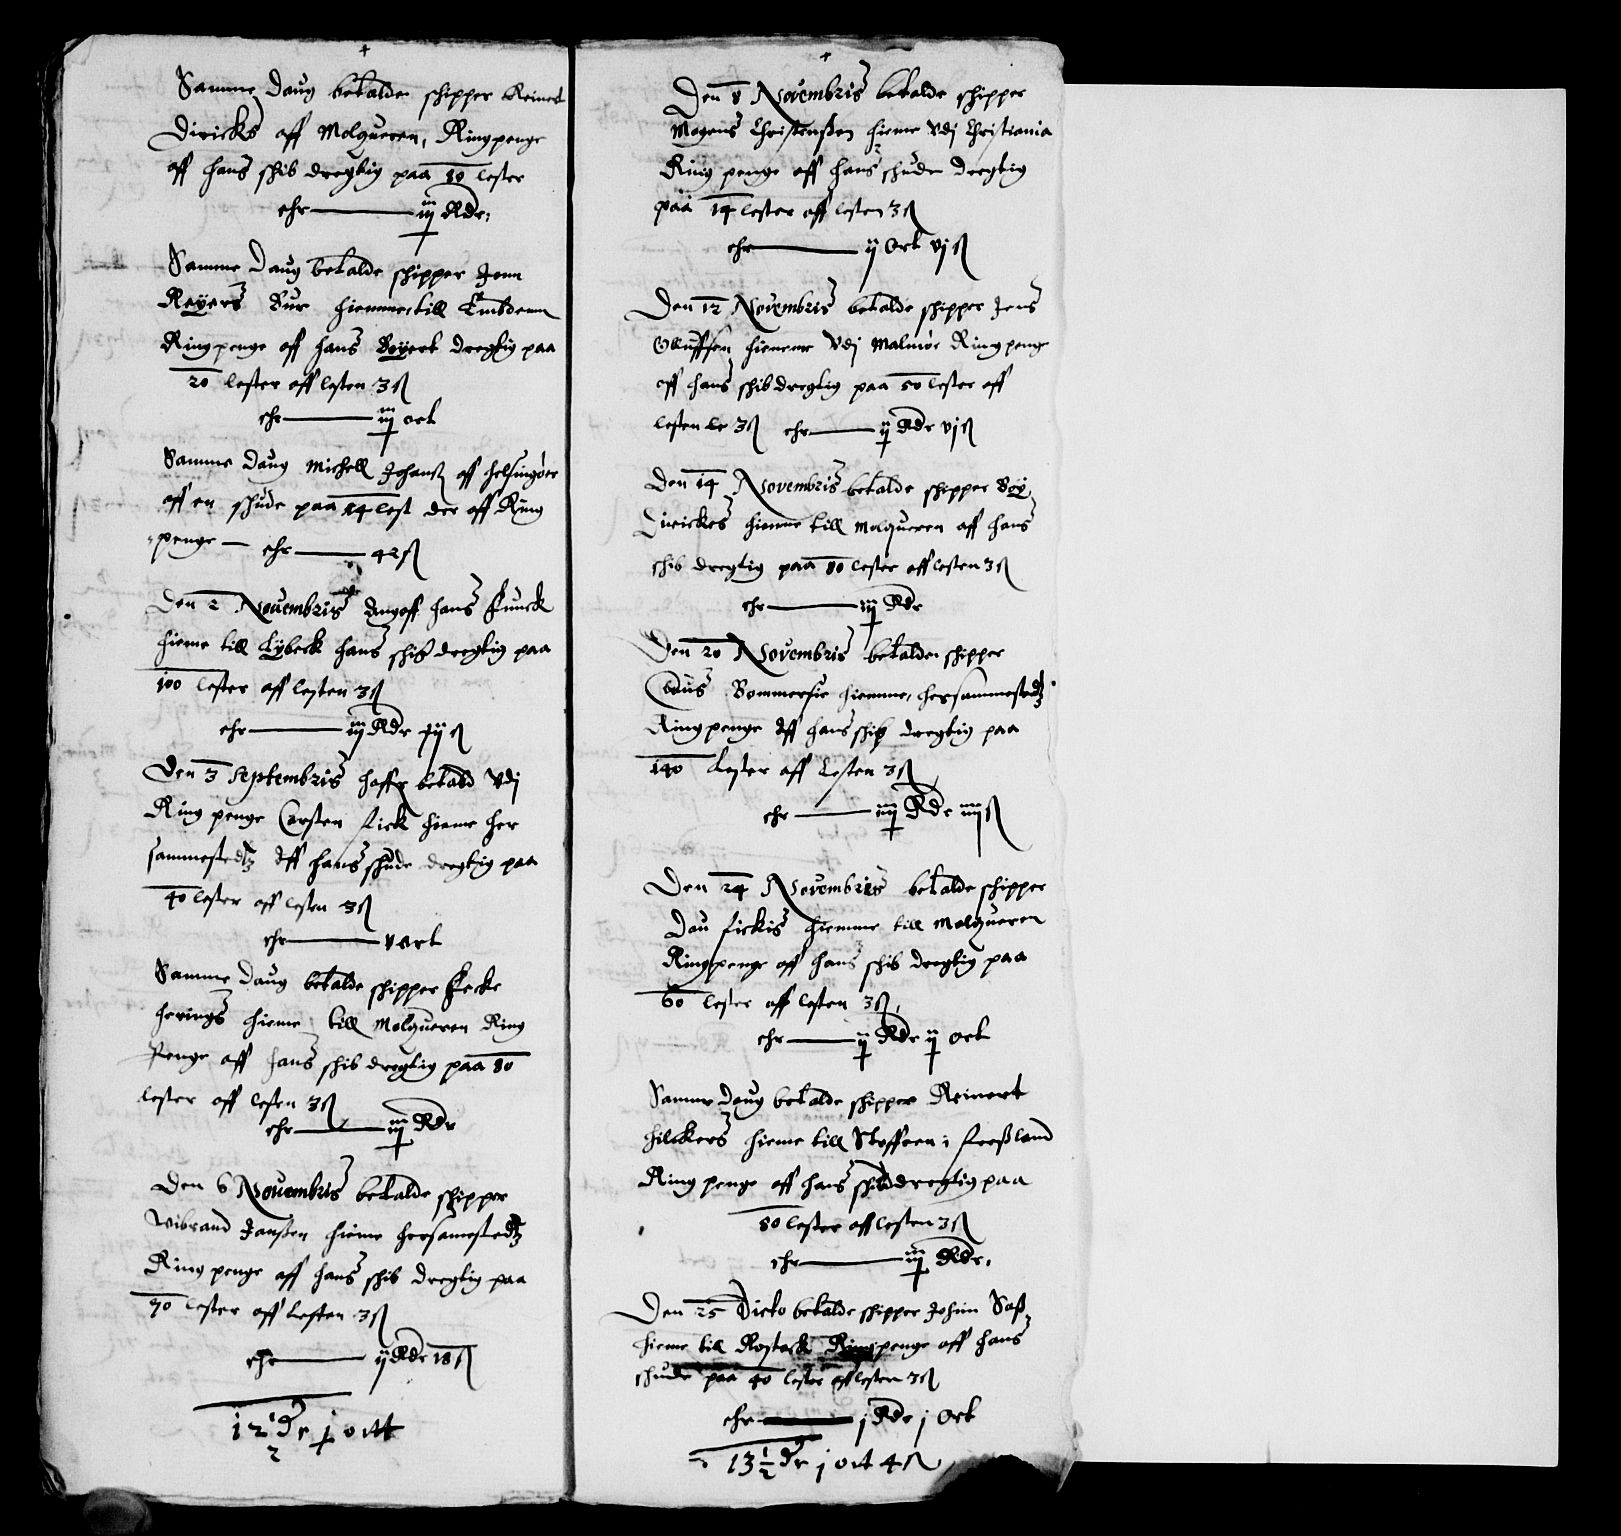 Samme Daug betalde schipper Reinert
Diricks aff Molqueren, Ringpenge
aff hans schib dregtig paa 80 lester
ehr iij Rdr:
Samme Daug betalde schipper Jenn
Reÿers Bur hiemme till Embdenn
Ringpenge aff hans Boÿert dregtig paa
20 lester aff lesten 3 ß
ehr iij ort
Samme Daug Michell Johanß aff Helsingöer
aff en schude paa 14 lest der aff Ring
penge ehr 42 ß
Den 2 Nouembris Hans Funck
hieme till Lÿbeck hans schib dregtig paa
100 lester aff lesten 3 ß
ehr iij Rdr ß
Den 3 Septembris haffr betald Vdj
Ring penge Carsten Fick hieme her
sammestedtz Aff hans schude dregtig paa
40 lester aff lesten 3 ß
ehr v ort
Samme Daug betalde schipper Fecke
Herings hieme till Molqueren Ring
Penge aff hans schib dregtig paa 80
lester aff lesten 3 ß
ehr iij Rdr
Den 6 Nouembris betalde schipper
Wibrand Janßen hieme hersamestedtz
Ring penge aff hans schib dregtig paa
70 lester aff Lesten 3 ß
ehr ij Rdr 18 ß
12 1/2 Dr j ortt
Den 8 Novembris betalde schipper
Mogens Christenßen hieme Vdj Christiania
Ring penge aff hans schude dregtig
paa 14 lester aff lesten 3 ß
ehr ij Ort vj ß
Den 12 Novembris betalde schipper Jens
Oluffsen hiemme Vdj Malmöe Ringpenge
aff hans schib dregtig paa 50 lester aff
lesten 3 ß ehr ij Rdr vj ß
Den 14 Novembris betalde schipper Boÿ
Dirickes hieme till Molqueren aff hans
schib dregtig paa 80 lester aff lesten 3 ß
ehr iij Rdr
Den 20 Novembris betalde schipper
Claus Bommersie hiemme hersammestedtz
Ringpenge Aff hans schib dregtig paa
140 Lester aff Lesten 3 ß
ehr iiij Rdr iiij ß
Den 24 Novembris betalde schipper
Dau Fickis hiemme till Molqueren
Ringpenge aff hans schib dregtig paa
60 lester aff lesten 3 ß
ehr ij Rdr ij ort
Samme Daug betalde schipper Reinert
Hilckers hieme till Stoffren i Freßland
Ring penge aff hans schib dregtig paa
80 lester aff lesten 3 ß
ehr iij Rdr:
Den 25 Dicto betalde schipper Johim Saß
hieme till Rostock Ringpenge aff hans
schude paa 40 lester aff lesten 3 ß
ehr j Rdr j Ort
13 1/2 Dr j ort 4 ß